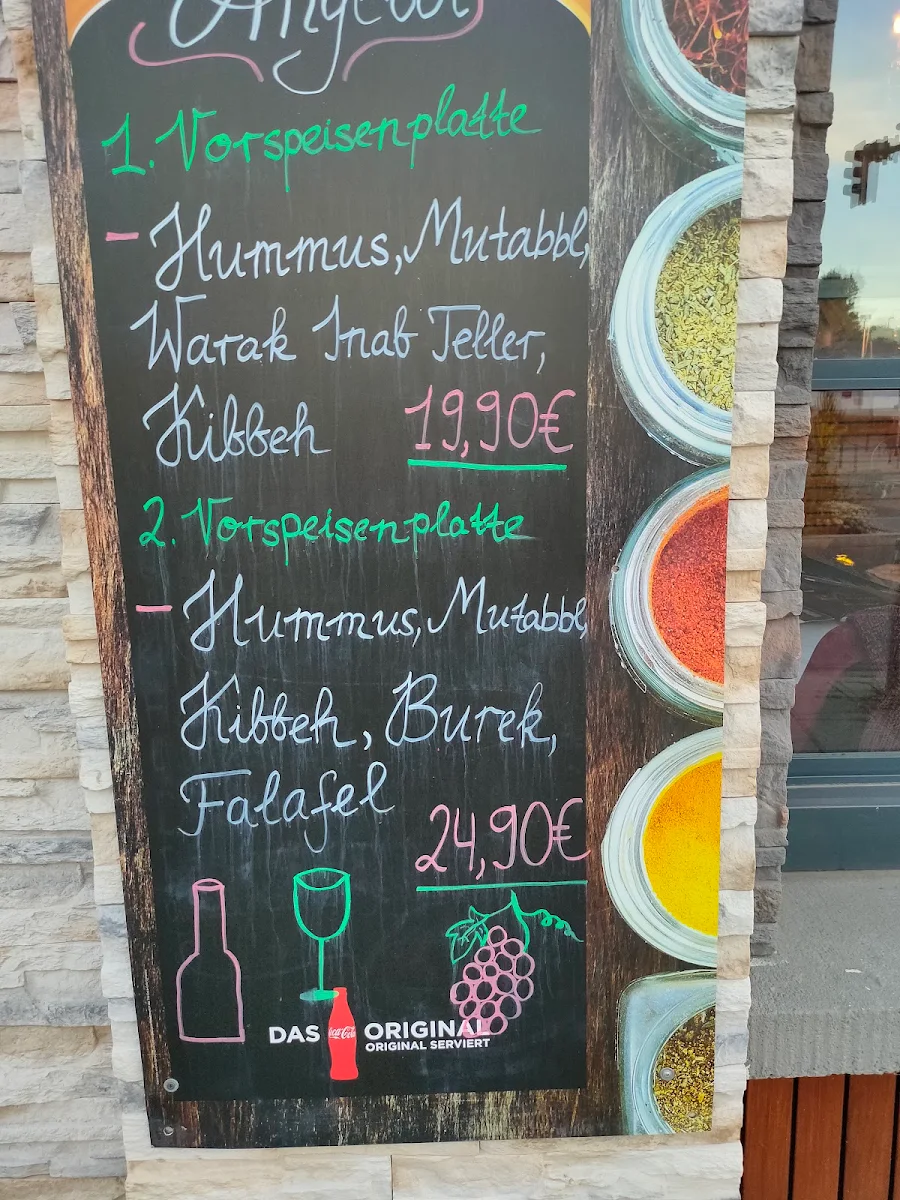 Angebot
1. Vorspeisenplatte
- Hummus, Mutabbl,
Warak Inab Teller,
Kibbeh 19,90€
2. Vorspeisenplatte
- Hummus, Mutabbl,
Kibbeh, Burek,
Falafel
24,90€
DAS Coca-Cola ORIGINAL
ORIGINAL SERVIERT